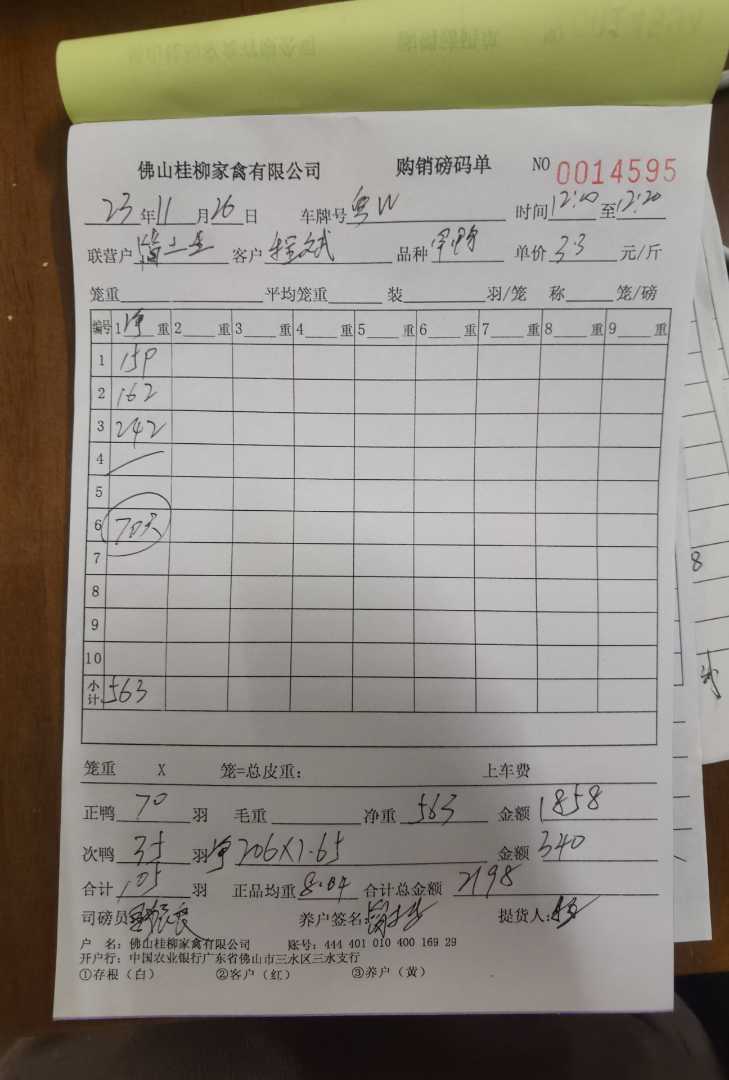 佛山桂柳家禽有限公司 购销磅码单 NO 0014595
23年11月26日 车牌号粤W 时间12:00至12:20
联营户 客户程斌 品种 单价3.3元/斤
笼重 平均笼重 装 羽/笼 称 笼/磅
编号 1净重 2 重 3 重 4 重 5 重 6 重 7 重 8 重 9 重
1 159
2 162
3 242
4
5
6 70天
7
8
9
10
小计 563
笼重 X 笼=总皮重: 上车费
正鸭 70 羽 毛重 净重 563 金额 1858
次鸭 35 羽 净206X1.65 金额 340
合计 105 羽 正品均重 8.04 合计总金额 2198
司磅员: 养户签名: 提货人:
户 名: 佛山桂柳家禽有限公司 账号: 444 401 010 400 169 29
开户行: 中国农业银行广东省佛山市三水区三水支行
①存根(白) ②客户(红) ③养户(黄)